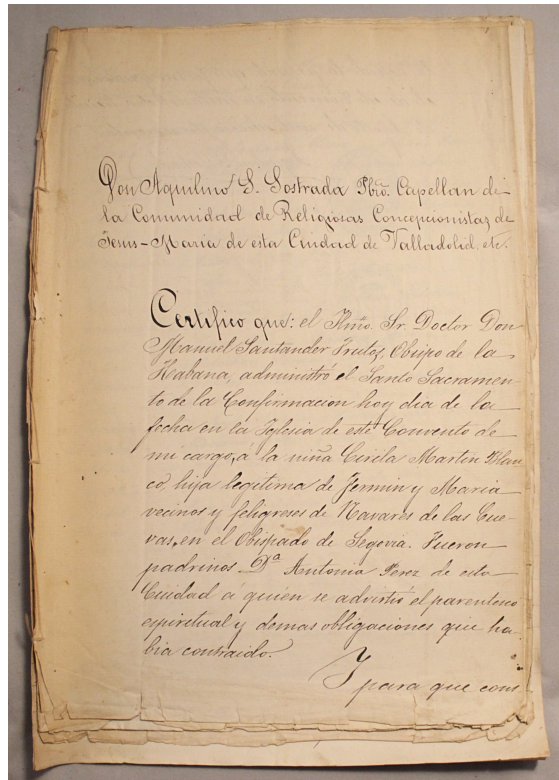 Don Aquilino S. Sostrada Pbro. Capellan de
la Comunidad de Religiosas Concepcionistas de
Jesus-Maria de esta Ciudad de Valladolid, etc.
Certifico que: el Ilmo. Sr. Doctor Don
Manuel Santander Frutos, Obispo de la
Habana, administró el Santo Sacramen-
to de la Confirmacion hoy dia de la
fecha en la Iglesia de este Convento de
mi cargo, á la niña Cirila Martin Blan
co, hija legitima de Fermin y Maria
vecinos y feligreses de Navares de las Cue-
vas, en el Obispado de Segovia. Fueron
padrinos D.ª Antonia Perez de esta
Ciudad a quien se advirtió el parentesco
espiritual y demas obligaciones que ha-
bia contraido.
Y para que cons